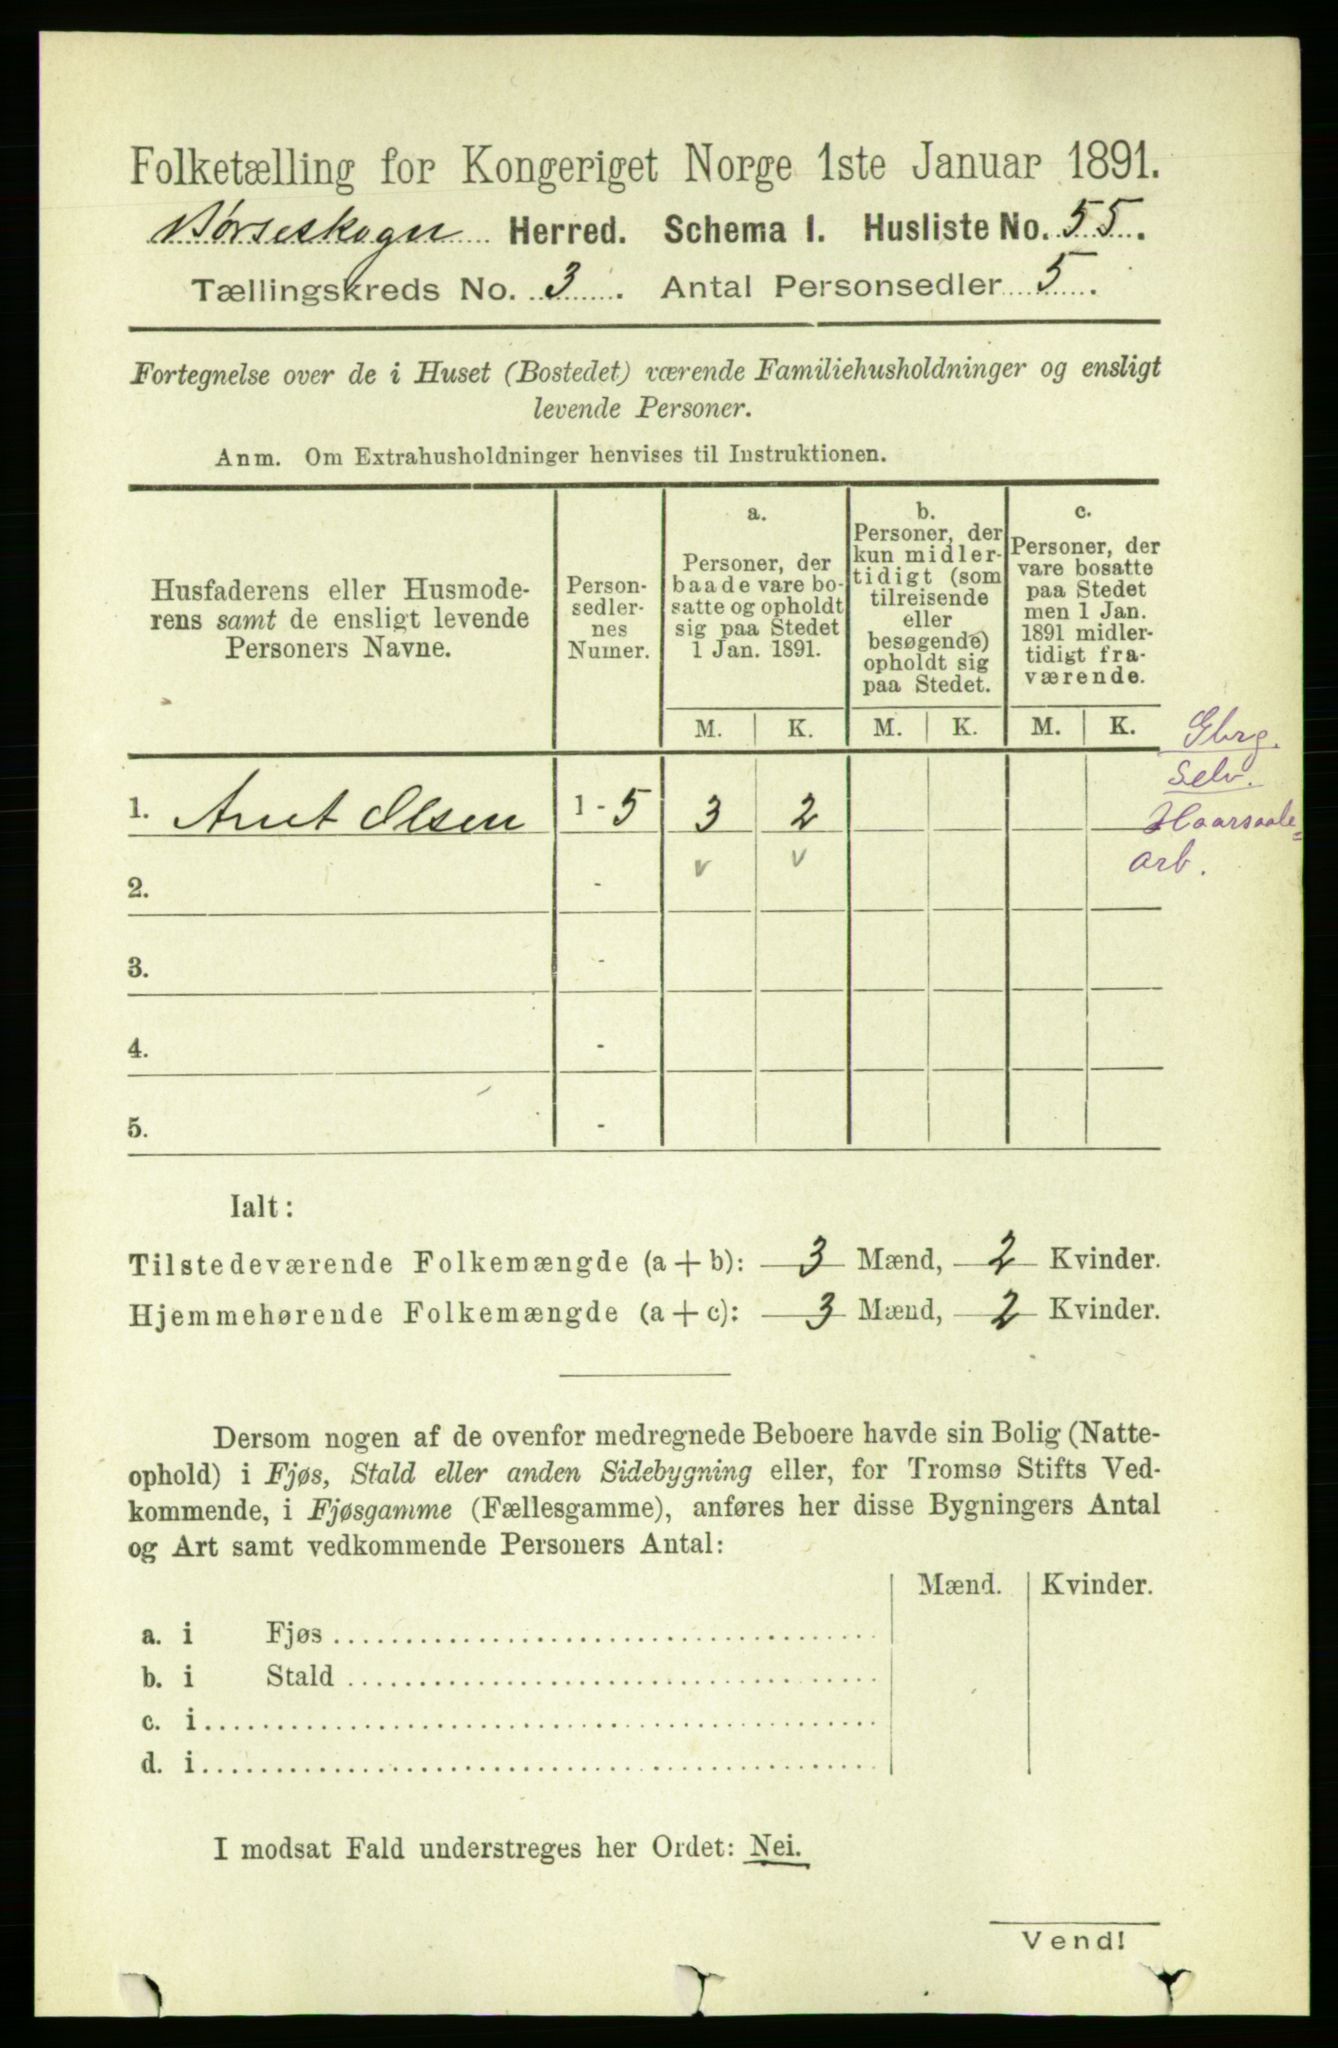 Folketælling for Kongeriget Norge 1ste Januar 1891.
Børseskogn Herred. Schema I. Husliste No. 55.
Tællingskreds No. 3. Antal Personsedler 5.
Fortegnelse over de i Huset (Bostedet) værende Familiehusholdninger og ensligt
levende Personer.
Anm. Om Extrahusholdninger henvises til Instruktionen.
Husfaderens eller Husmode-
rens samt de ensligt levende
Personers Navne.
Person-
sedler-
nes
Numer.
a.
Personer, der
baade vare bo-
satte og opholdt
sig paa Stedet
1 Jan. 1891.
b.
Personer, der
kun midler-
tidigt (som
tilreisende
eller
besøgende)
opholdt sig
paa Stedet.
c.
Personer, der
vare bosatte
paa Stedet
men 1 Jan.
1891 midler-
tidigt fra-
værende.
M. K. M. K. M. K.
Gbrg.
Selv.
1. Arnt Olsen 1 - 5 3 2
Haarsaale=
arb.
2. - v v
3. -
4. -
5. -
Ialt:
Tilstedeværende Folkemængde (a + b): 3 Mænd, 2 Kvinder.
Hjemmehørende Folkemængde (a + c): 3 Mænd, 2 Kvinder.
Dersom nogen af de ovenfor medregnede Beboere havde sin Bolig (Natte-
ophold) i Fjøs, Stald eller anden Sidebygning eller, for Tromsø Stifts Ved-
kommende, i Fjøsgamme (Fællesgamme), anføres her disse Bygningers Antal
og Art samt vedkommende Personers Antal:
Mænd. Kvinder.
a. i Fjøs
b. i Stald
c. i
d. i
I modsat Fald understreges her Ordet: Nei.
Vend!